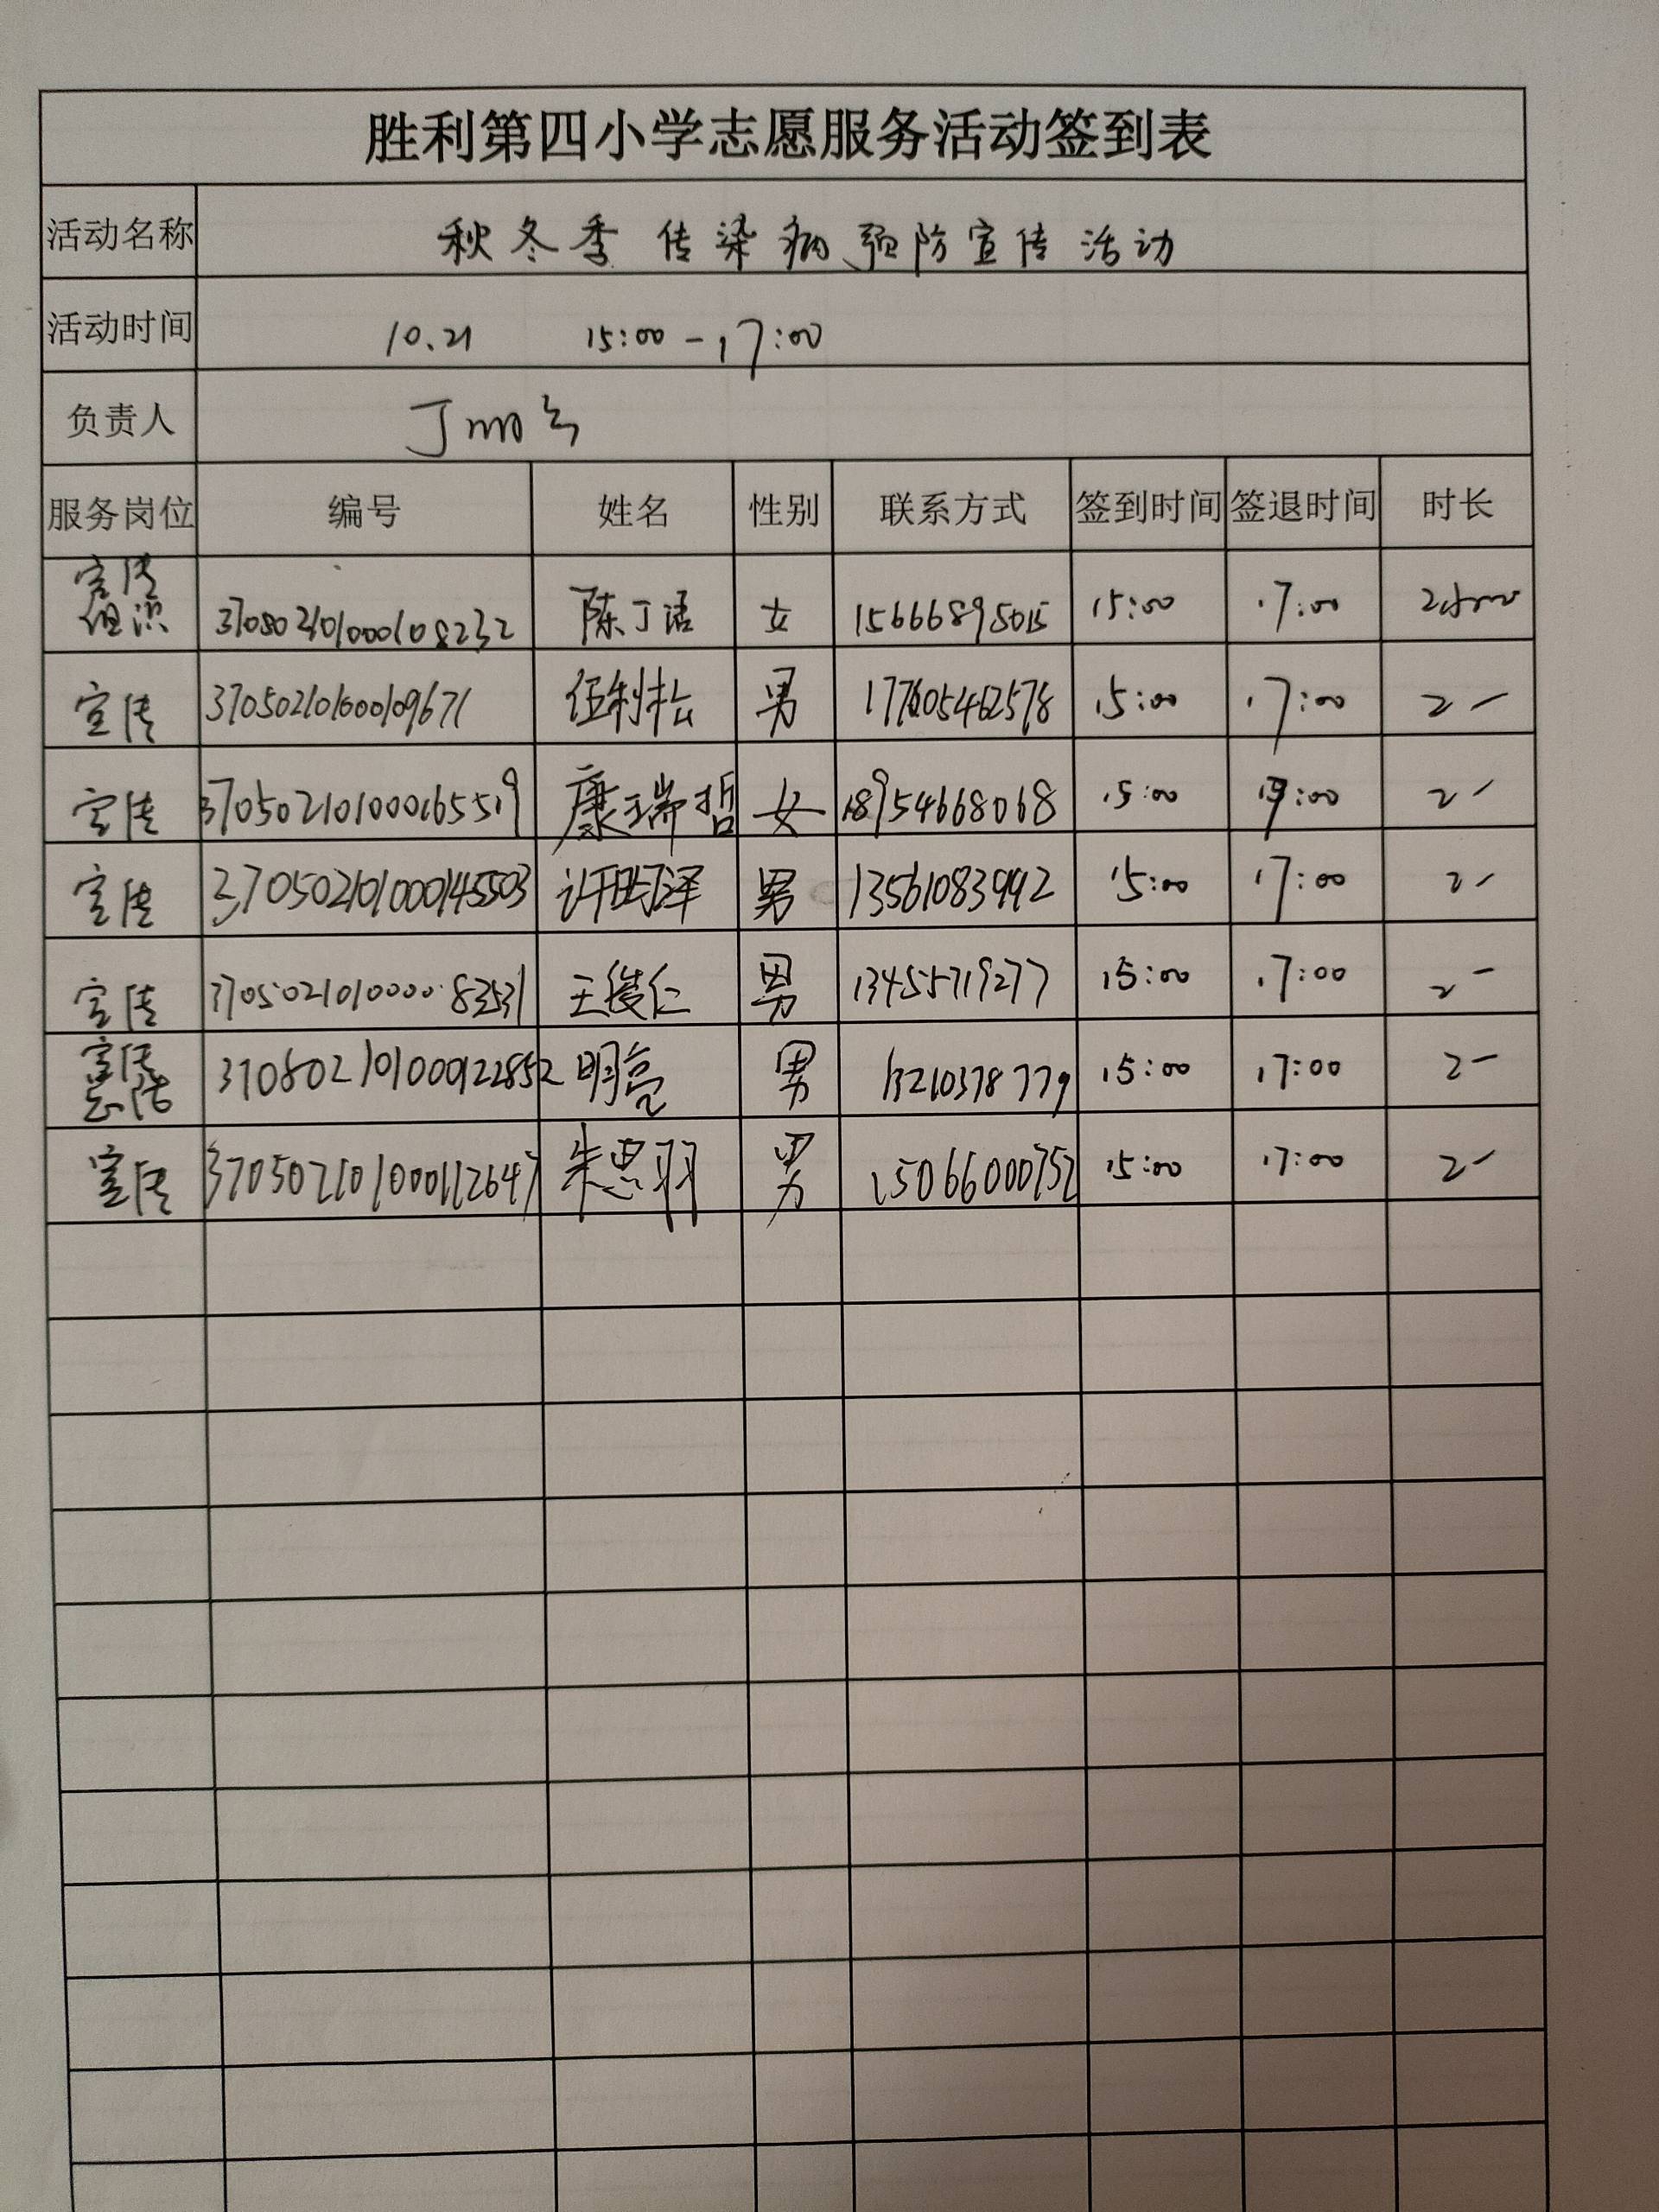 胜利第四小学志愿服务活动签到表
活动名称 秋冬季传染病预防宣传活动
活动时间 10.21 15:00-17:00
负责人 丁
服务岗位 编号 姓名 性别 联系方式 签到时间 签退时间 时长
宣传
组织 370502101000108232 陈丁语 女 15666895015 15:00 17:00 2小时
宣传 伍利松 男 15:00 17:00 2
宣传 370502101000165519 康瑞哲 女 18954668068 15:00 17:00 2
宣传 370502101000145503 男 13561083992 15:00 17:00 2
宣传 王俊仁 男 13455719277 15:00 17:00 2
宣传
总结 370502101000122852 明亮 男 13210378779 15:00 17:00 2
宣传 370502101000112647 朱思羽 男 15066000752 15:00 17:00 2